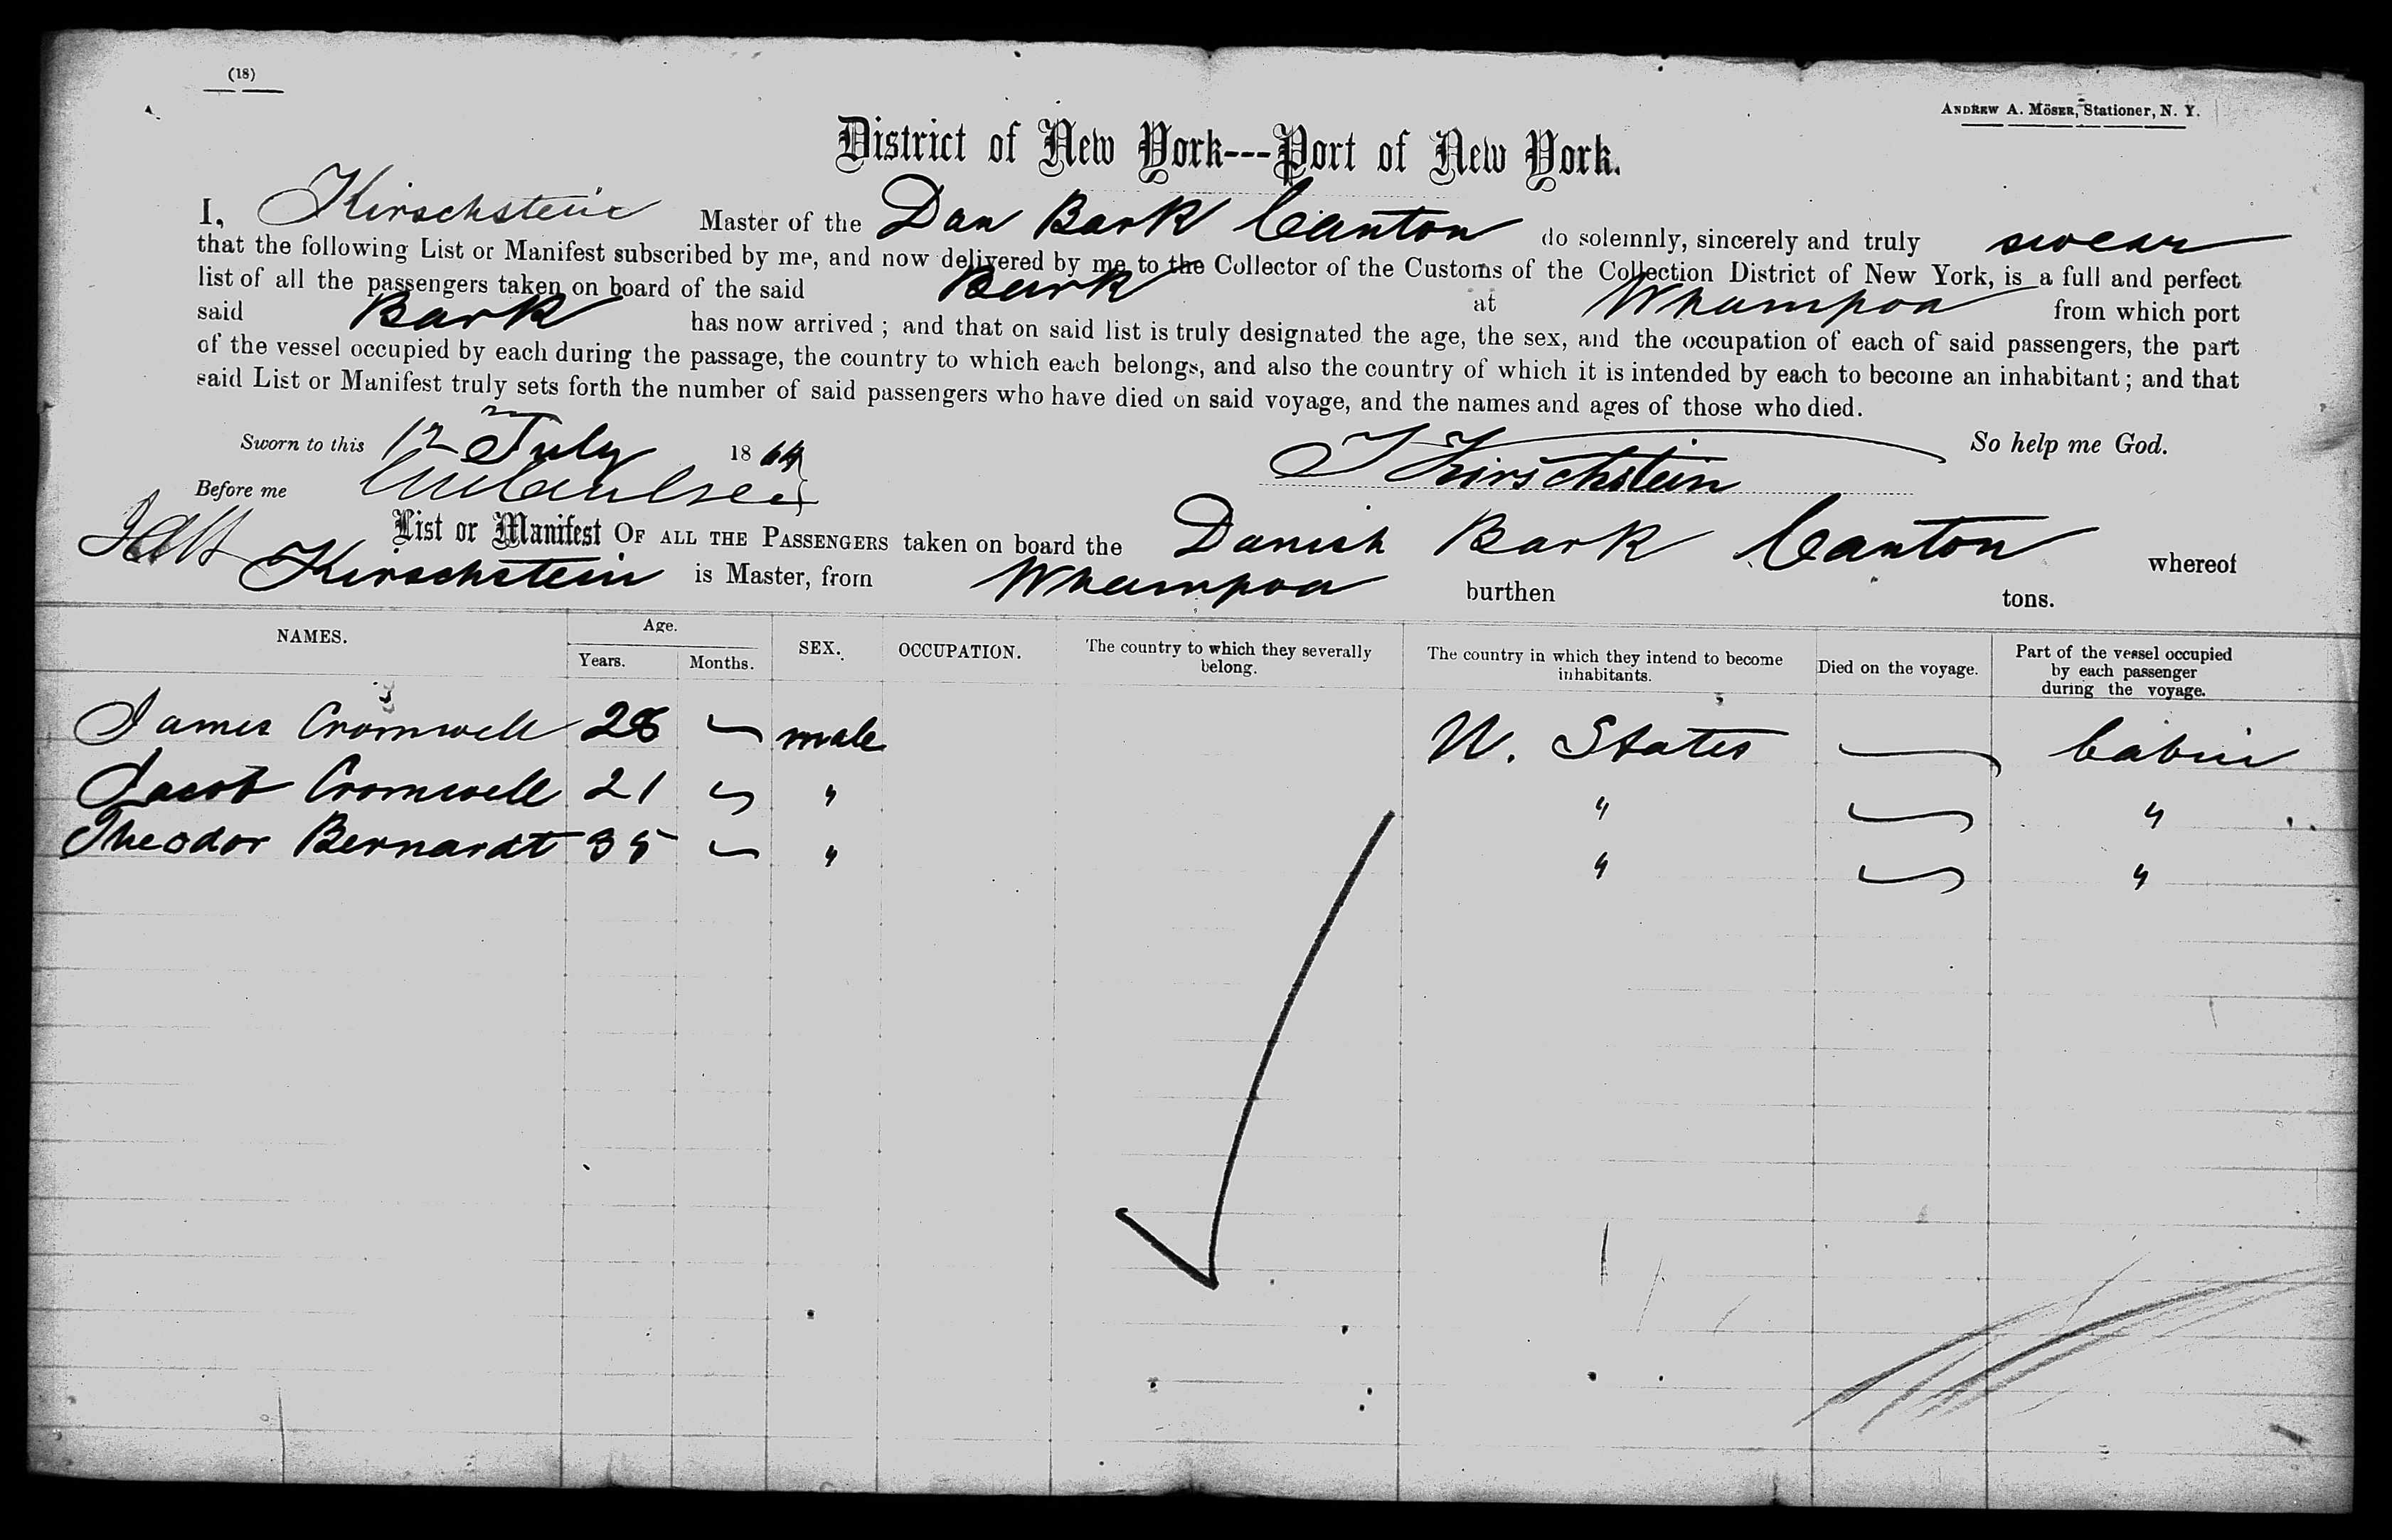 (18)
ANDREW A. MÖSER, Stationer, N. Y.
District of New York---Port of New York.
I, Kirschstein Master of the Dan Bark Canton do solemnly, sincerely and truly swear
that the following List or Manifest subscribed by me, and now delivered by me to the Collector of the Customs of the Collection District of New York, is a full and perfect
list of all the passengers taken on board of the said Bark at Whampoa from which port
said Bark has now arrived; and that on said list is truly designated the age, the sex, and the occupation of each of said passengers, the part
of the vessel occupied by each during the passage, the country to which each belongs, and also the country of which it is intended by each to become an inhabitant; and that
said List or Manifest truly sets forth the number of said passengers who have died on said voyage, and the names and ages of those who died.
Sworn to this 12 July 1864 So help me God.
Before me Kirschstein
List or Manifest OF ALL THE PASSENGERS taken on board the Danish Bark Canton whereof
Kirschstein is Master, from Whampoa burthen tons.
NAMES. Age. Years. Months. SEX. OCCUPATION. The country to which they severally belong. The country in which they intend to become inhabitants. Died on the voyage. Part of the vessel occupied by each passenger during the voyage.
James Cromwell 28 male U. States Cabin
Jacob Cromwell 21 " " "
Theodor Bernardt 35 " " "